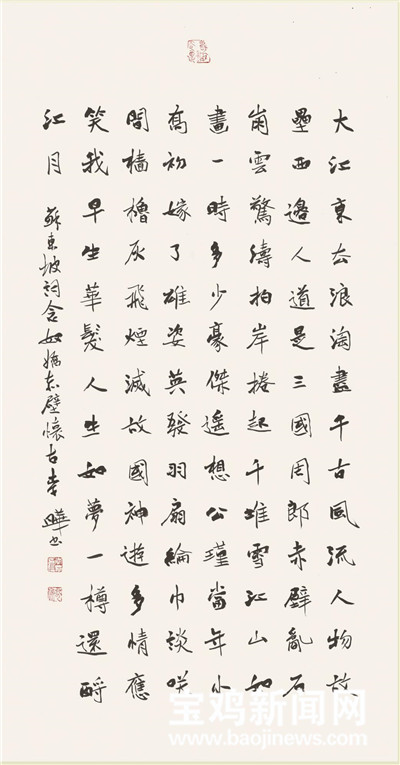 大江東去浪淘盡千古風流人物故
壘西邊人道是三國周郎赤壁亂石
崩雲驚濤拍岸捲起千堆雪江山如
畫一時多少豪傑遙想公瑾當年小
喬初嫁了雄姿英發羽扇綸巾談咲
間檣櫓灰飛煙滅故國神遊多情應
笑我早生華髮人生如夢一樽還酹
江月
蘇東坡詞念奴嬌赤壁懷古李曄书
宝鸡新闻网
www.baojinews.com